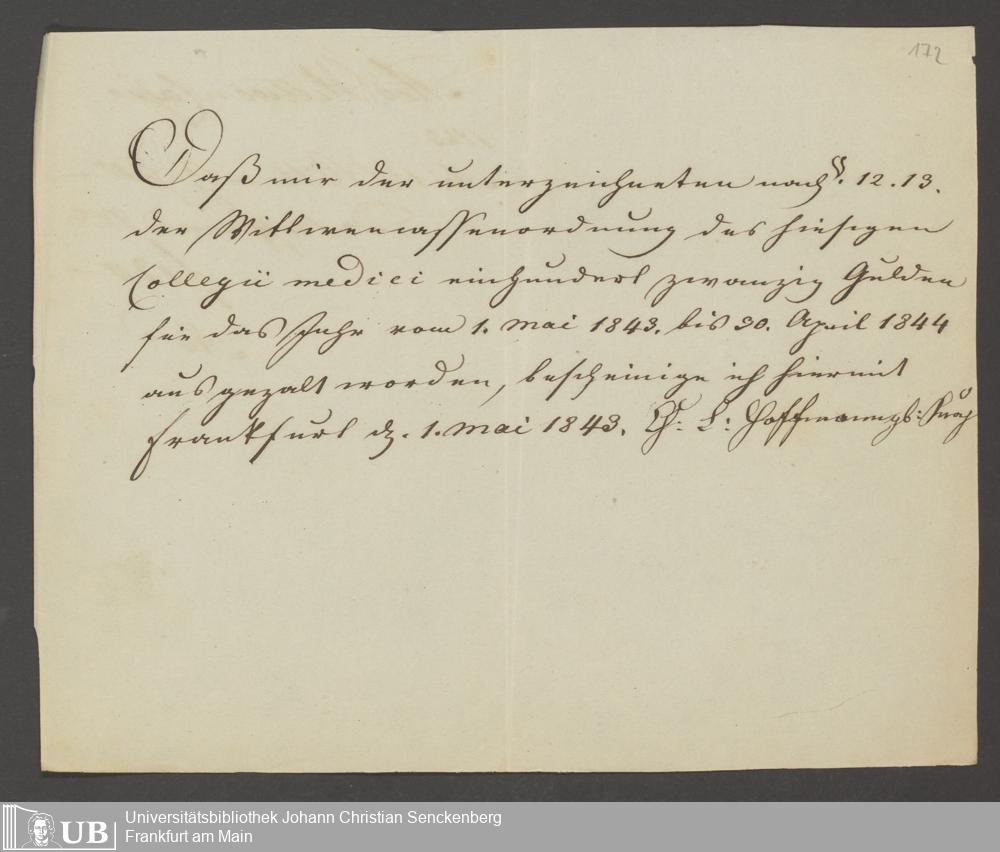 172
Daß mir der unterzeichneten nach §. 12.13.
der Wittwencassenordnung des hiesigen
Collegii medici einhundert zwanzig Gulden
für das Jahr vom 1. Mai 1843. bis 30. April 1844
ausgezalt worden, bescheinige ich hiermit
Frankfurt d. 1. Mai 1843. Ch: L: Hoffmann
UB
Universitätsbibliothek Johann Christian Senckenberg
Frankfurt am Main